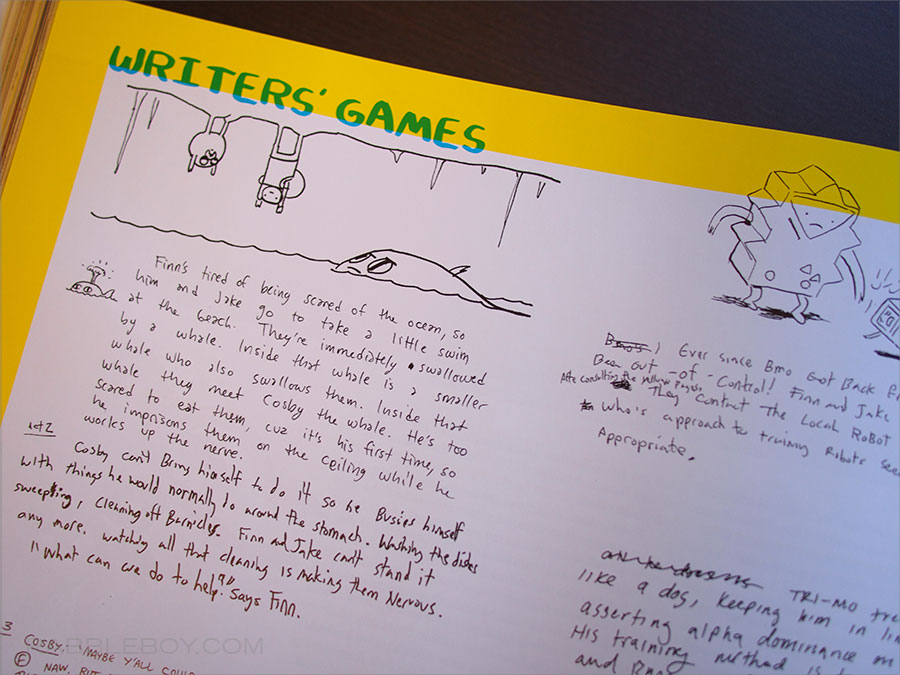 WRITERS' GAMES
Finn's tired of being scared of the ocean, so
him and Jake go to take a little swim
at the beach. They're immediately swallowed
by a whale. Inside that whale is a smaller
whale who also swallows them. Inside that
whale they meet Cosby the whale. He's too
scared to eat them, cuz it's his first time, so
he imprisons them on the ceiling while he
works up the nerve.
act 2
Cosby can't Bring himself to do it so he Busies himself
with things he would normally do around the stomach. Washing the dishes
sweeping, cleaning off Barnicles. Finn and Jake can't stand it
any more. watching all that cleaning is making them Nervous.
"What can we do to help?" Says Finn.
3
COSBY, MAYBE Y'ALL COULD
F NAW, BUT
BBLEBOY.COM
Bmo's! Ever since Bmo Got Back
Been out-of-Control! Finn and Jake
After consulting the yellow Pages
They Contact The Local RoBoT
Who's approach to training Robots
Appropriate.
TRI-MO
like a dog, keeping him in
asserting alpha dominance on
His training method is
and